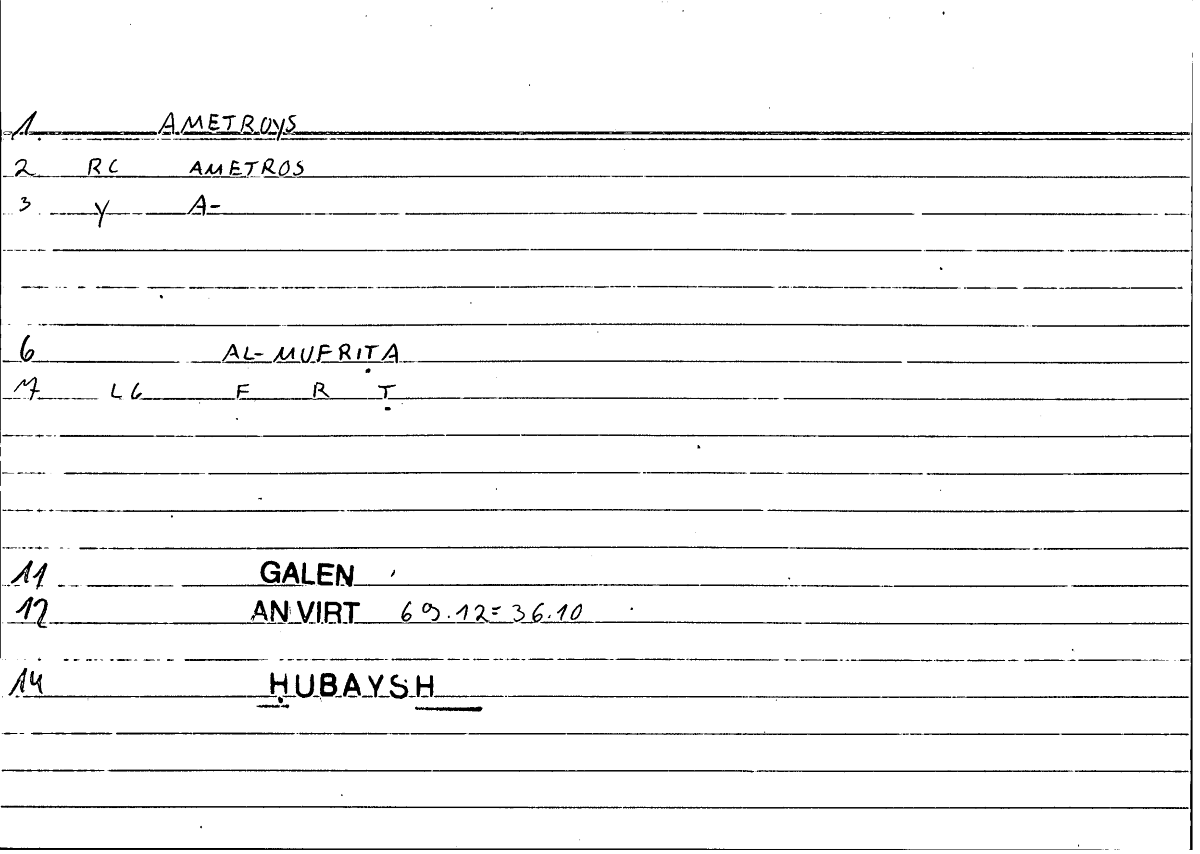 1 AMETROYS
2 RC AMETROS
3 Y A-
6 AL-MUFRIṬA
7 LG F R Ṭ
11 GALEN
12 AN VIRT 69.12=36.10
14 ḤUBAYSH